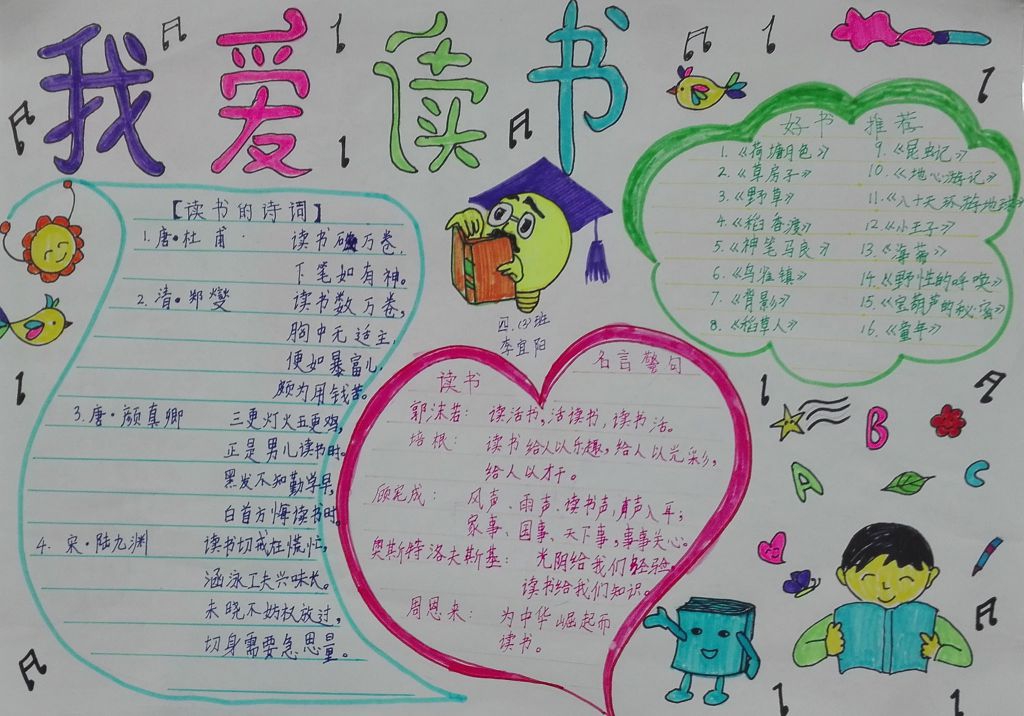 我爱读书
【读书的诗词】
1.唐·杜甫 读书破万卷,
下笔如有神。
2.清·郑燮 读书数万卷,
胸中无适主,
便如暴富儿,
颇为用钱苦。
3.唐·颜真卿 三更灯火五更鸡,
正是男儿读书时。
黑发不知勤学早,
白首方悔读书时。
4.宋·陆九渊 读书切戒在慌忙,
涵泳工夫兴味长。
未晓不妨权放过,
切身需要急思量。
四.(3)班
李宜阳
读书 名言警句
郭沫若: 读活书,活读书,读书活。
培根: 读书给人以乐趣,给人以光彩,
给人以才干。
顾宪成: 风声、雨声、读书声,声声入耳;
家事、国事、天下事,事事关心。
奥斯特洛夫斯基: 光阴给我们经验,
读书给我们知识。
周恩来: 为中华崛起而
读书。
好书 推荐
1.《荷塘月色》
2.《草房子》
3.《野草》
4.《稻香渡》
5.《神笔马良》
6.《乌雀镇》
7.《背影》
8.《稻草人》
9.《昆虫记》
10.《地心游记》
11.《八十天环游地球》
12.《小王子》
13.《海蒂》
14.《野性的呼唤》
15.《宝葫芦的秘密》
16.《童年》
A
B
C